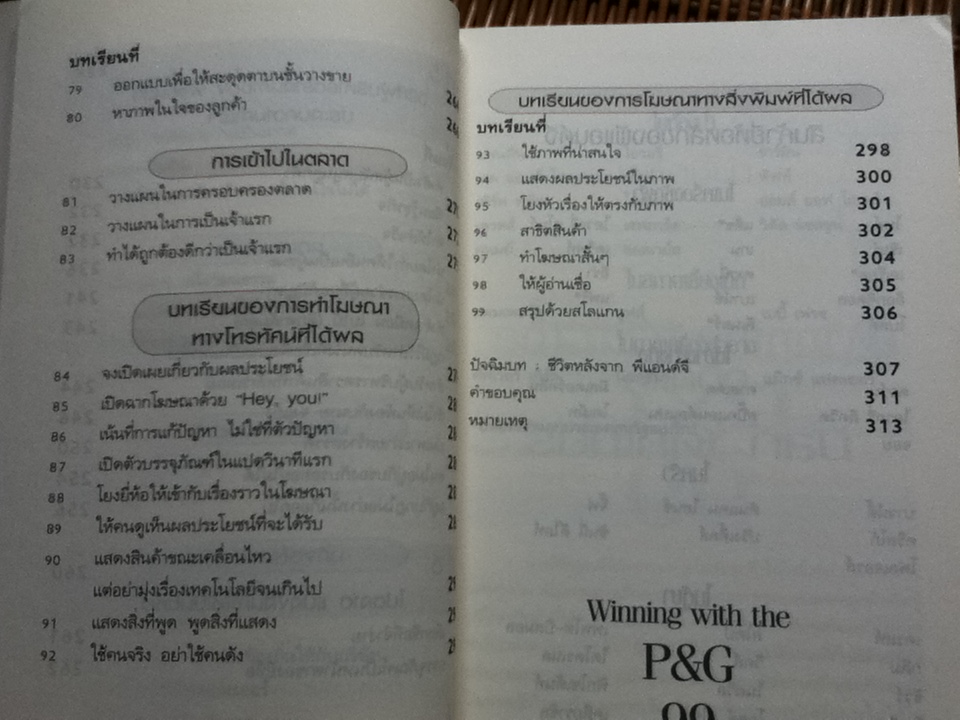 บทเรียนที่
79 ออกแบบเพื่อให้สะดุดตาบนชั้นวางขาย
80 หาภาพในใจของลูกค้า
การเข้าไปในตลาด
81 วางแผนในการครอบครองตลาด
82 วางแผนในการเป็นเจ้าแรก
83 ทำได้ถูกต้องดีกว่าเป็นเจ้าแรก
บทเรียนของการทำโฆษณา
ทางโทรทัศน์ที่ได้ผล
84 จงเปิดเผยเกี่ยวกับผลประโยชน์
85 เปิดฉากโฆษณาด้วย "Hey, you!"
86 เน้นที่การแก้ปัญหา ไม่ใช่ที่ตัวปัญหา
87 เปิดตัวบรรจุภัณฑ์ในแปดวินาทีแรก
88 โยงยี่ห้อให้เข้ากับเรื่องราวในโฆษณา
89 ให้คนดูเห็นผลประโยชน์ที่จะได้รับ
90 แสดงสินค้าขณะเคลื่อนไหว
แต่อย่ามุ่งเรื่องเทคโนโลยีจนเกินไป
91 แสดงสิ่งที่พูด พูดสิ่งที่แสดง
92 ใช้คนจริง อย่าใช้คนดัง
บทเรียนของการโฆษณาทางสิ่งพิมพ์ที่ได้ผล
บทเรียนที่
93 ใช้ภาพที่น่าสนใจ 298
94 แสดงผลประโยชน์ในภาพ 300
95 โยงหัวเรื่องให้ตรงกับภาพ 301
96 สาธิตสินค้า 302
97 ทำโฆษณาสั้นๆ 304
98 ให้ผู้อ่านเชื่อ 305
99 สรุปด้วยสโลแกน 306
ปัจฉิมบท : ชีวิตหลังจาก พีแอนด์จี 307
คำขอบคุณ 311
หมายเหตุ 313
Winning with the
P&G
99